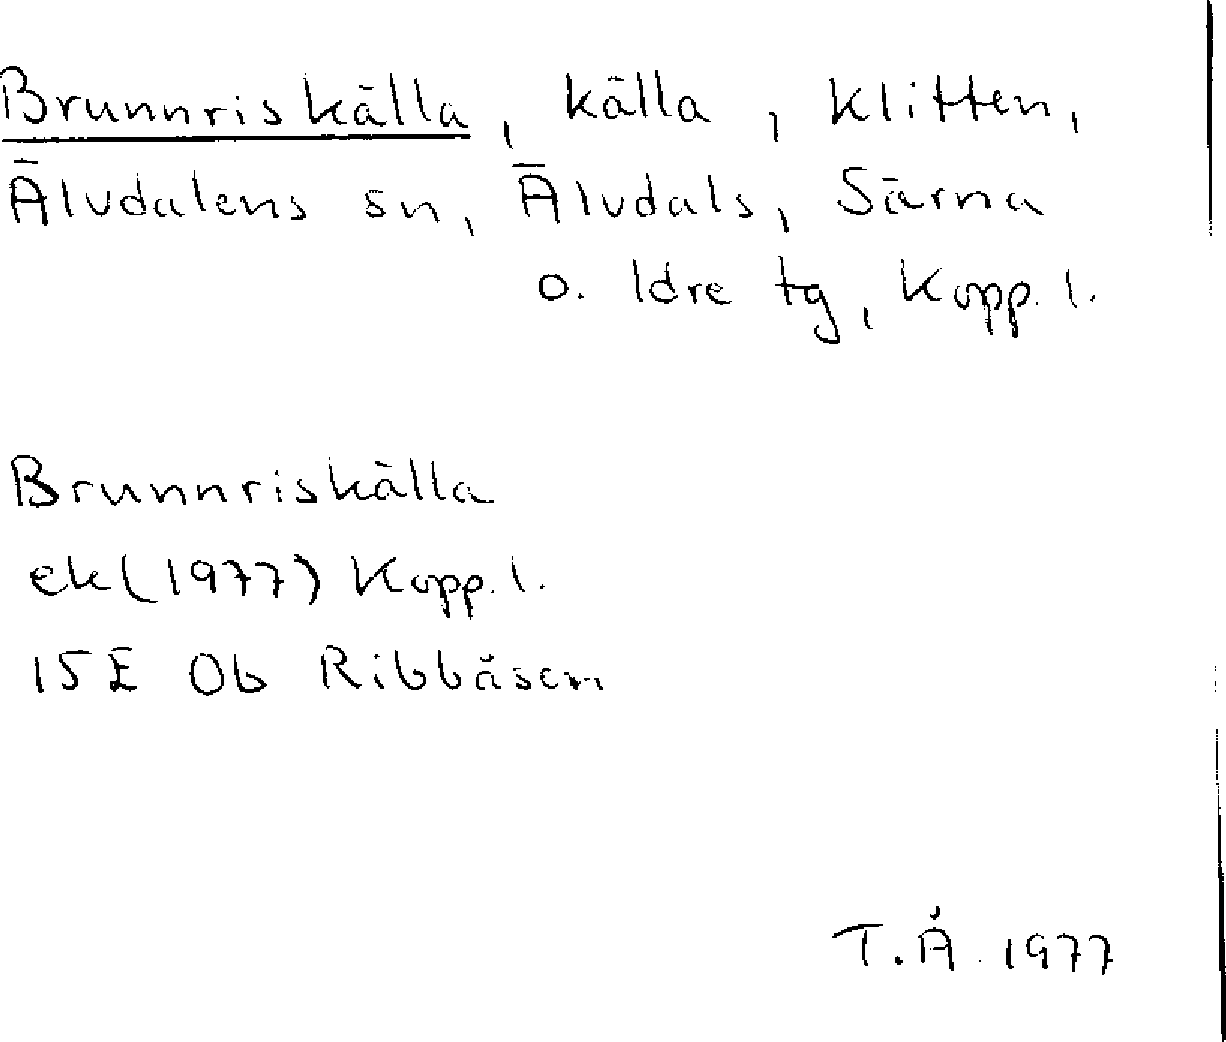 Brunnriskälla, källa, Klitten,
Älvdalens sn, Älvdals, Särna
o. Idre tg, Kopp. l.
Brunnriskälla
ek (1977) Kopp. l.
15E 0b Ribbåsen
T.Å. 1977